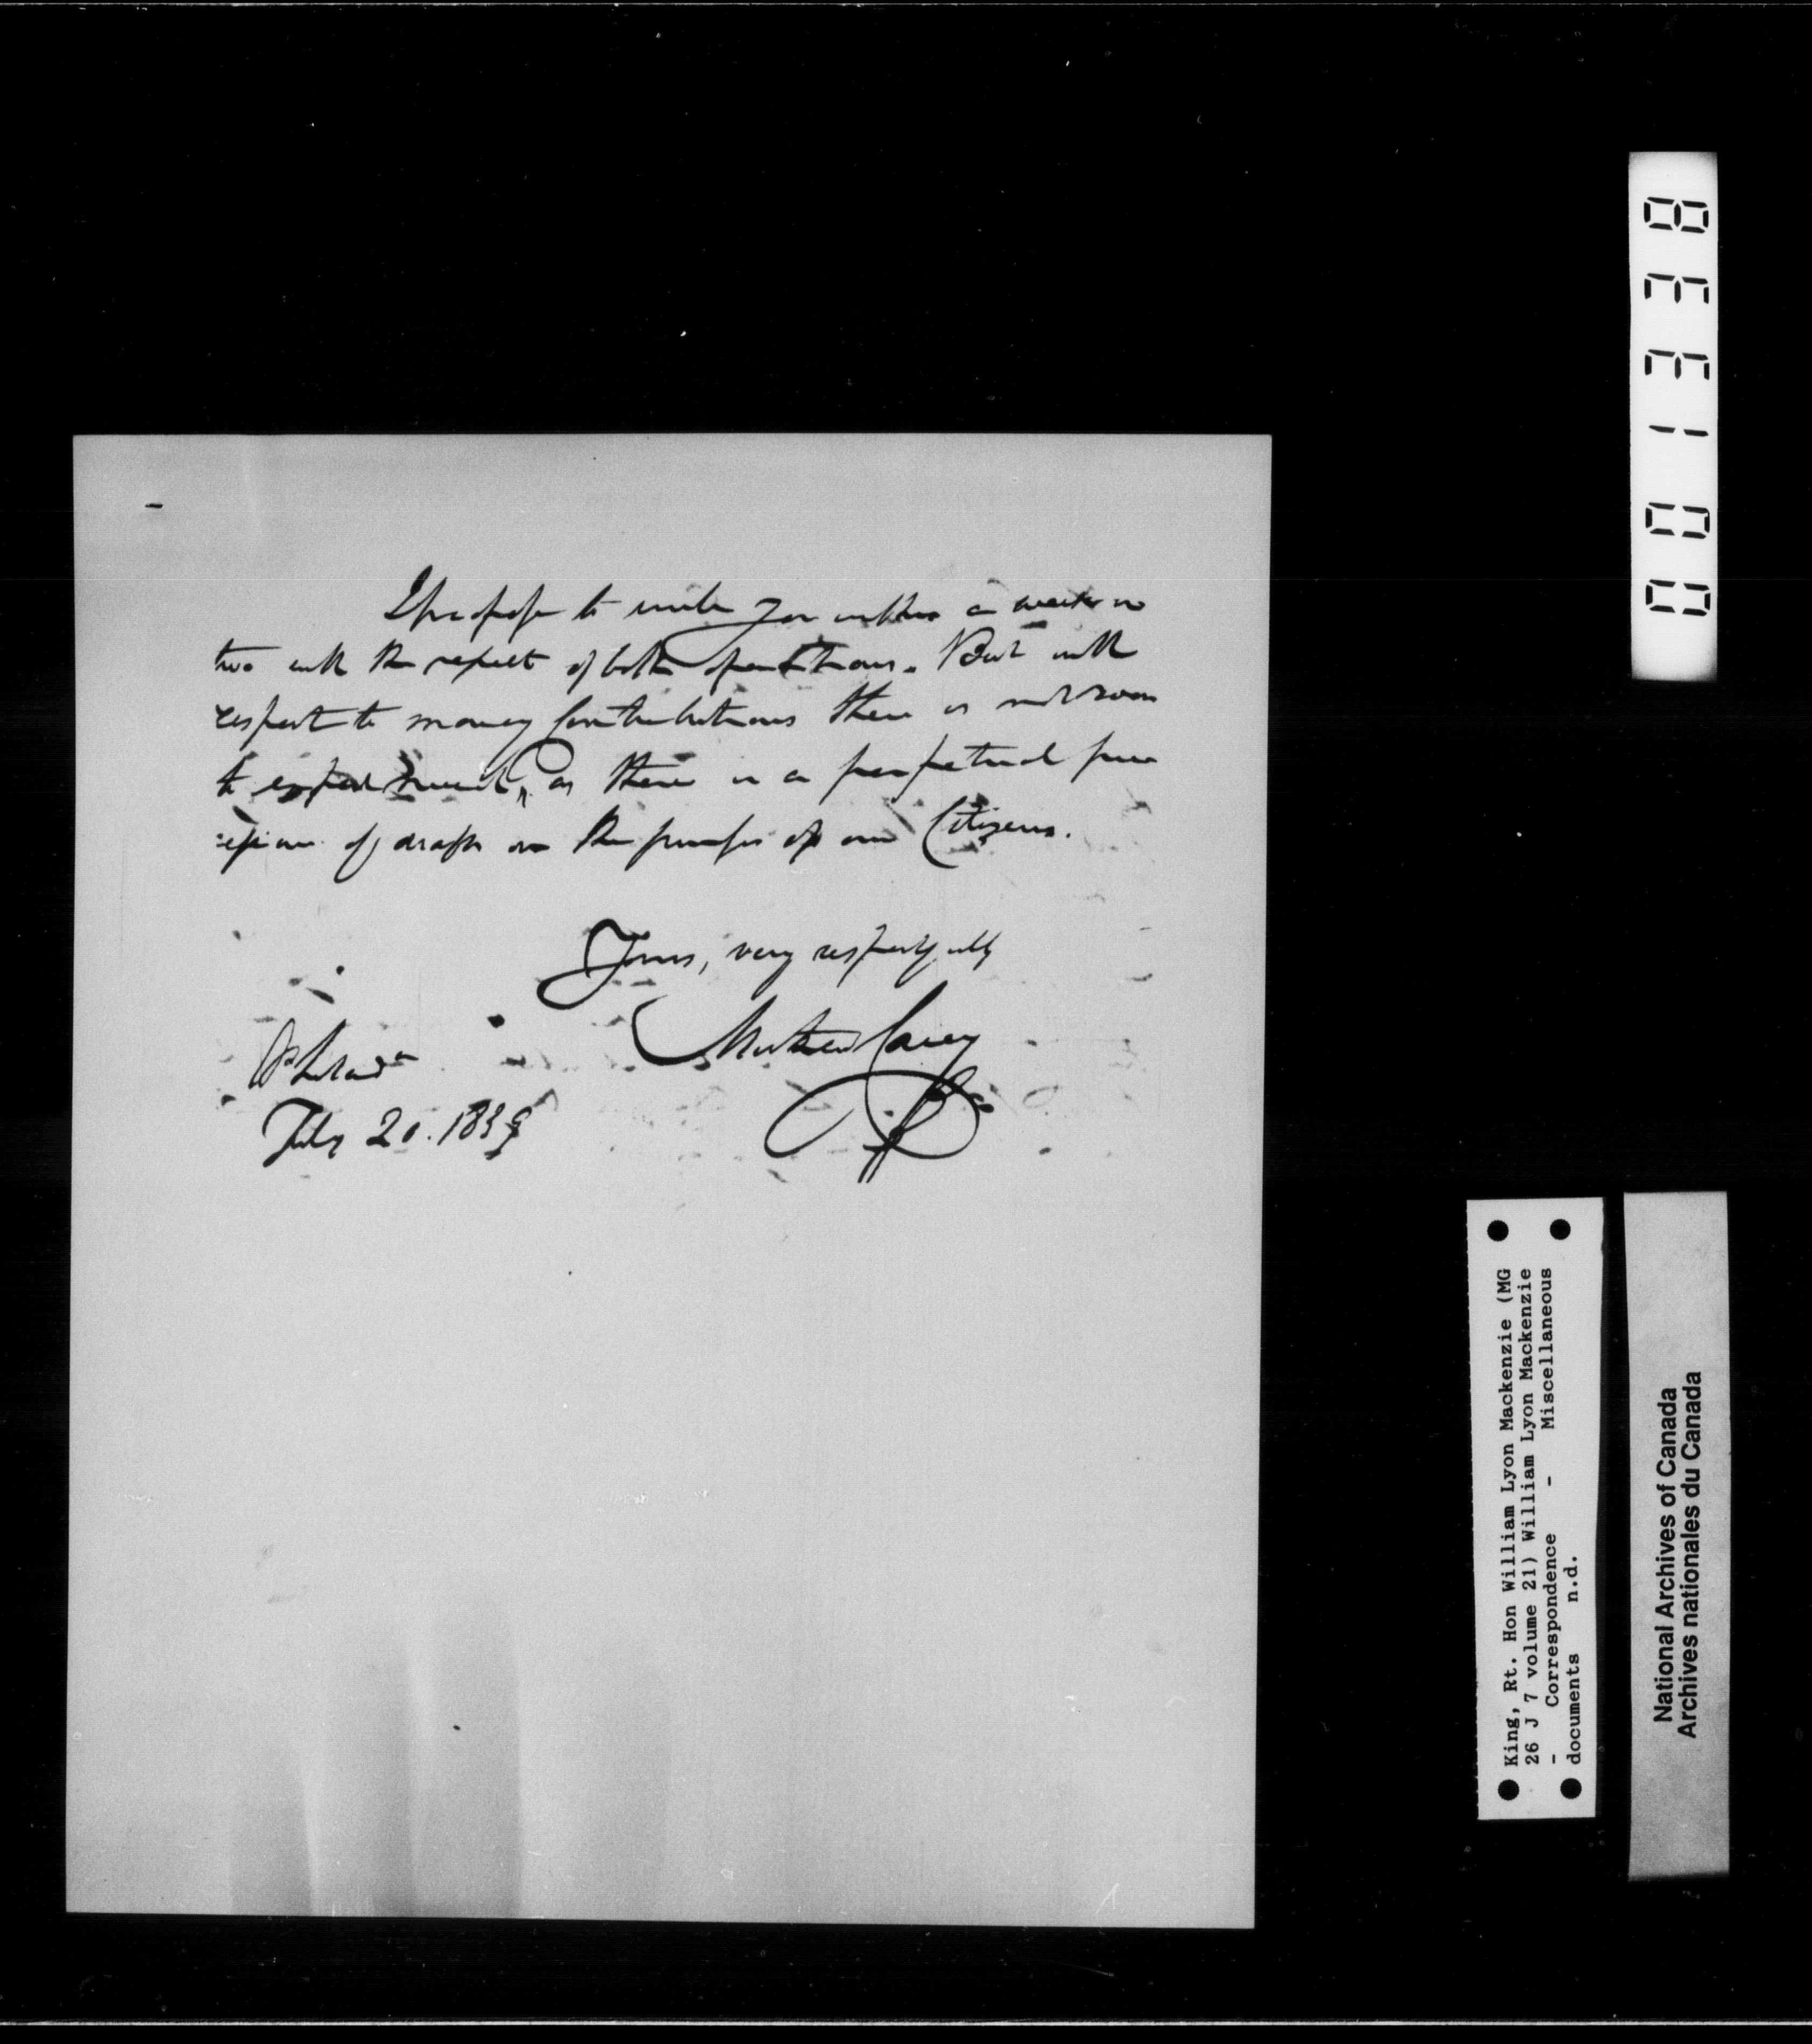 I propose to write you within a week or
two with the result of both operations. But with
respect to money Contributions there is not room
to expect much, as there is a perpetual succ
ession of drafts on the purses of our Citizens.
Yours, very respectfully
Mathew Carey
Philada
July 20. 1839
001338
King, Rt. Hon William Lyon Mackenzie (MG
26 J 7 volume 21) William Lyon Mackenzie
- Correspondence - Miscellaneous
documents n.d.
National Archives of Canada
Archives nationales du Canada